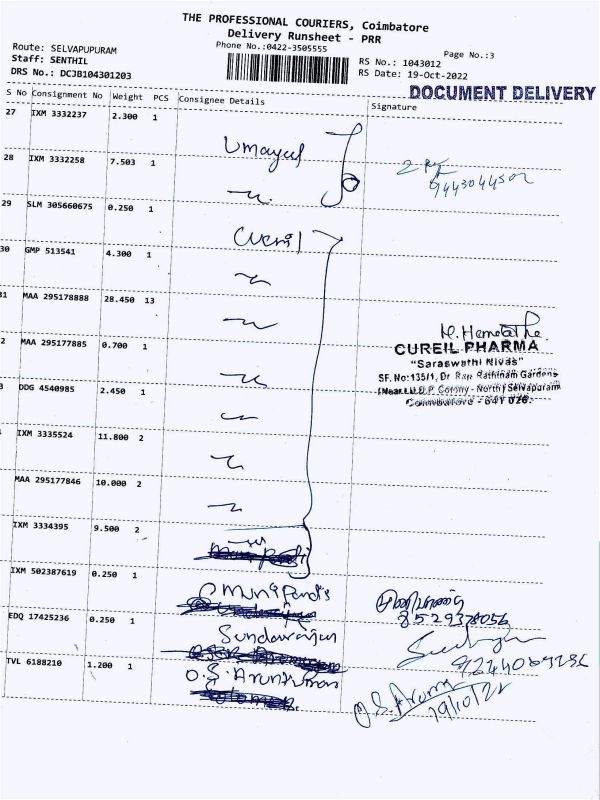 THE PROFESSIONAL COURIERS, Coimbatore
Delivery Runsheet - PRR
Phone No.:0422-3505555
Page No.:3
Route: SELVAPUPURAM
Staff: SENTHIL
DRS No.: DCJB104301203
RS No.: 1043012
RS Date: 19-Oct-2022
DOCUMENT DELIVERY
S No Consignment No Weight PCS Consignee Details Signature
27 IXM 3332237 2.300 1
28 IXM 3332258 7.503 1
29 SLM 305660675 0.250 1
30 GMP 513541 4.300 1
31 MAA 295178888 28.450 13
2 MAA 295177885 0.700 1
3 DDG 4540985 2.450 1
IXM 3335524 11.800 2
MAA 295177846 10.000 2
IXM 3334395 9.500 2
IXM 502387619 0.250 1
EDQ 17425236 0.250 1
Sundararajan
TVL 6188210 1.200 1
O.S. Arunkumar
CUREIL PHARMA
"Saraswathi Nivas"
SF. No:135/1, Dr. Raja Rathinam Gardens
(Near L.I.D.P. Colony - North) Selvapuram
Coimbatore - 641 026.
8529378056
19/10/22